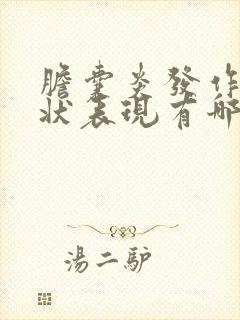 膽囊炎發作
狀表現有哪
湯二驴